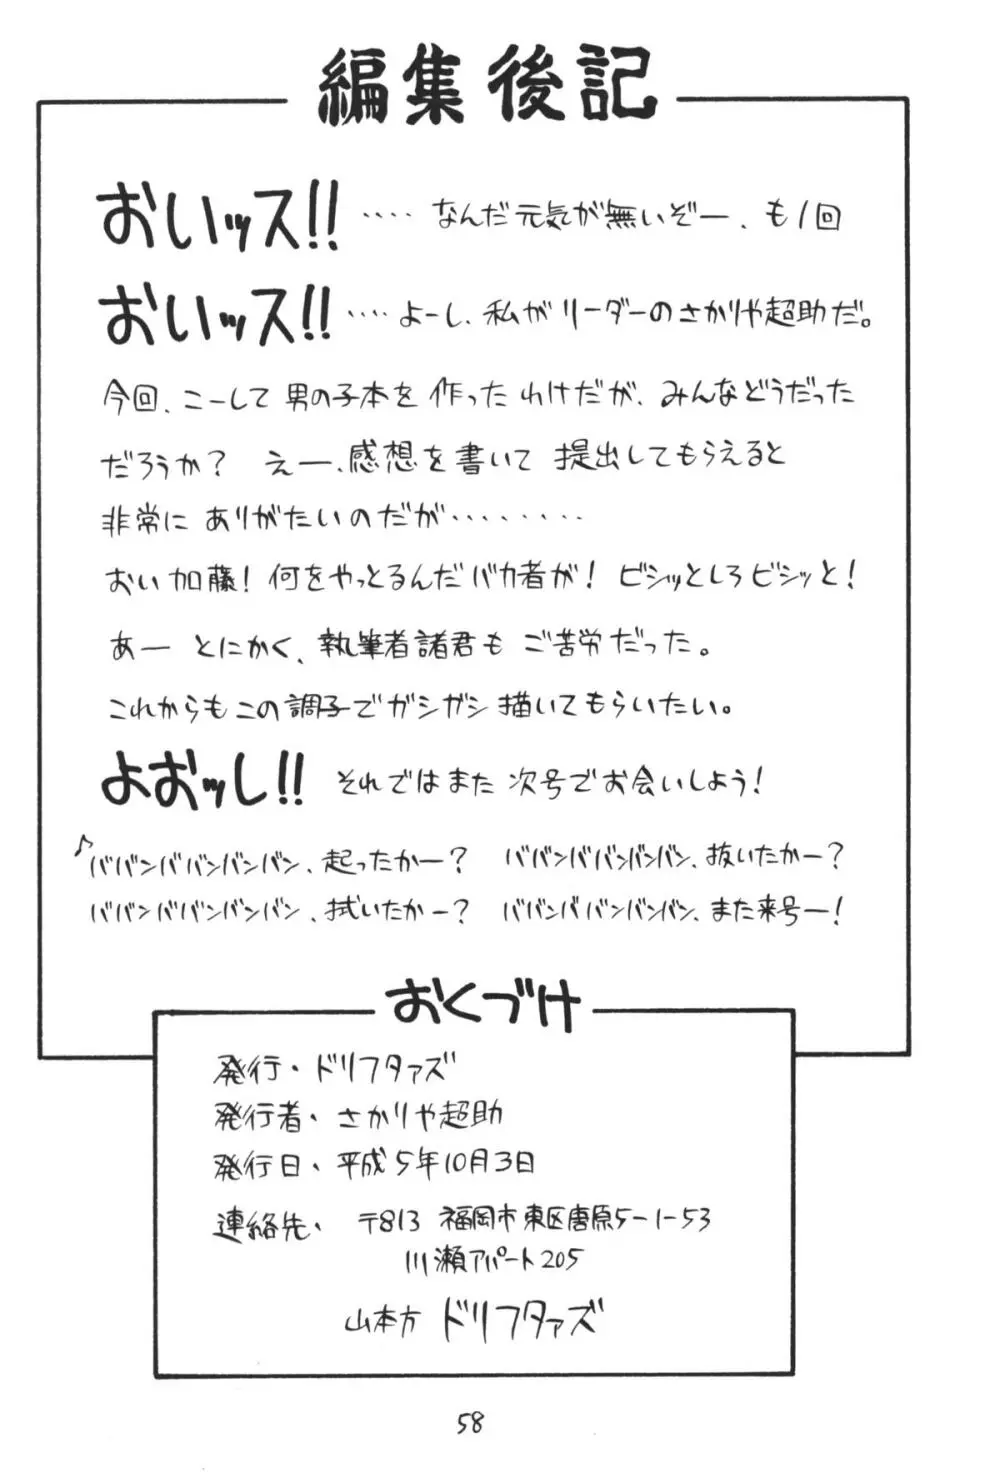 編集後記
おいッス!! ‥‥ なんだ元気が無いぞー、も1回
おいッス!! ‥‥ よーし、私がリーダーのさかりや超助だ。
今回、こーして男の子本を作ったわけだが、みんなどうだった
だろうか? えー、感想を書いて提出してもらえると
非常にありがたいのだが‥‥‥‥
おい加藤! 何をやっとるんだバカ者が! ビシッとしろビシッと!
あー とにかく、執筆者諸君もご苦労だった。
これからもこの調子でガシガシ描いてもらいたい。
よおッし!! それではまた次号でお会いしよう!
♪ババンババンバンバン、起ったかー? ババンババンバンバン、抜いたかー?
ババンババンバンバン、拭いたかー? ババンババンバンバン、また来号ー!
おくづけ
発行・ドリフタァズ
発行者・さかりや超助
発行日・平成5年10月3日
連絡先・ 〒813 福岡市東区唐原5-1-53
川瀬アパート205
山本方 ドリフタァズ
58